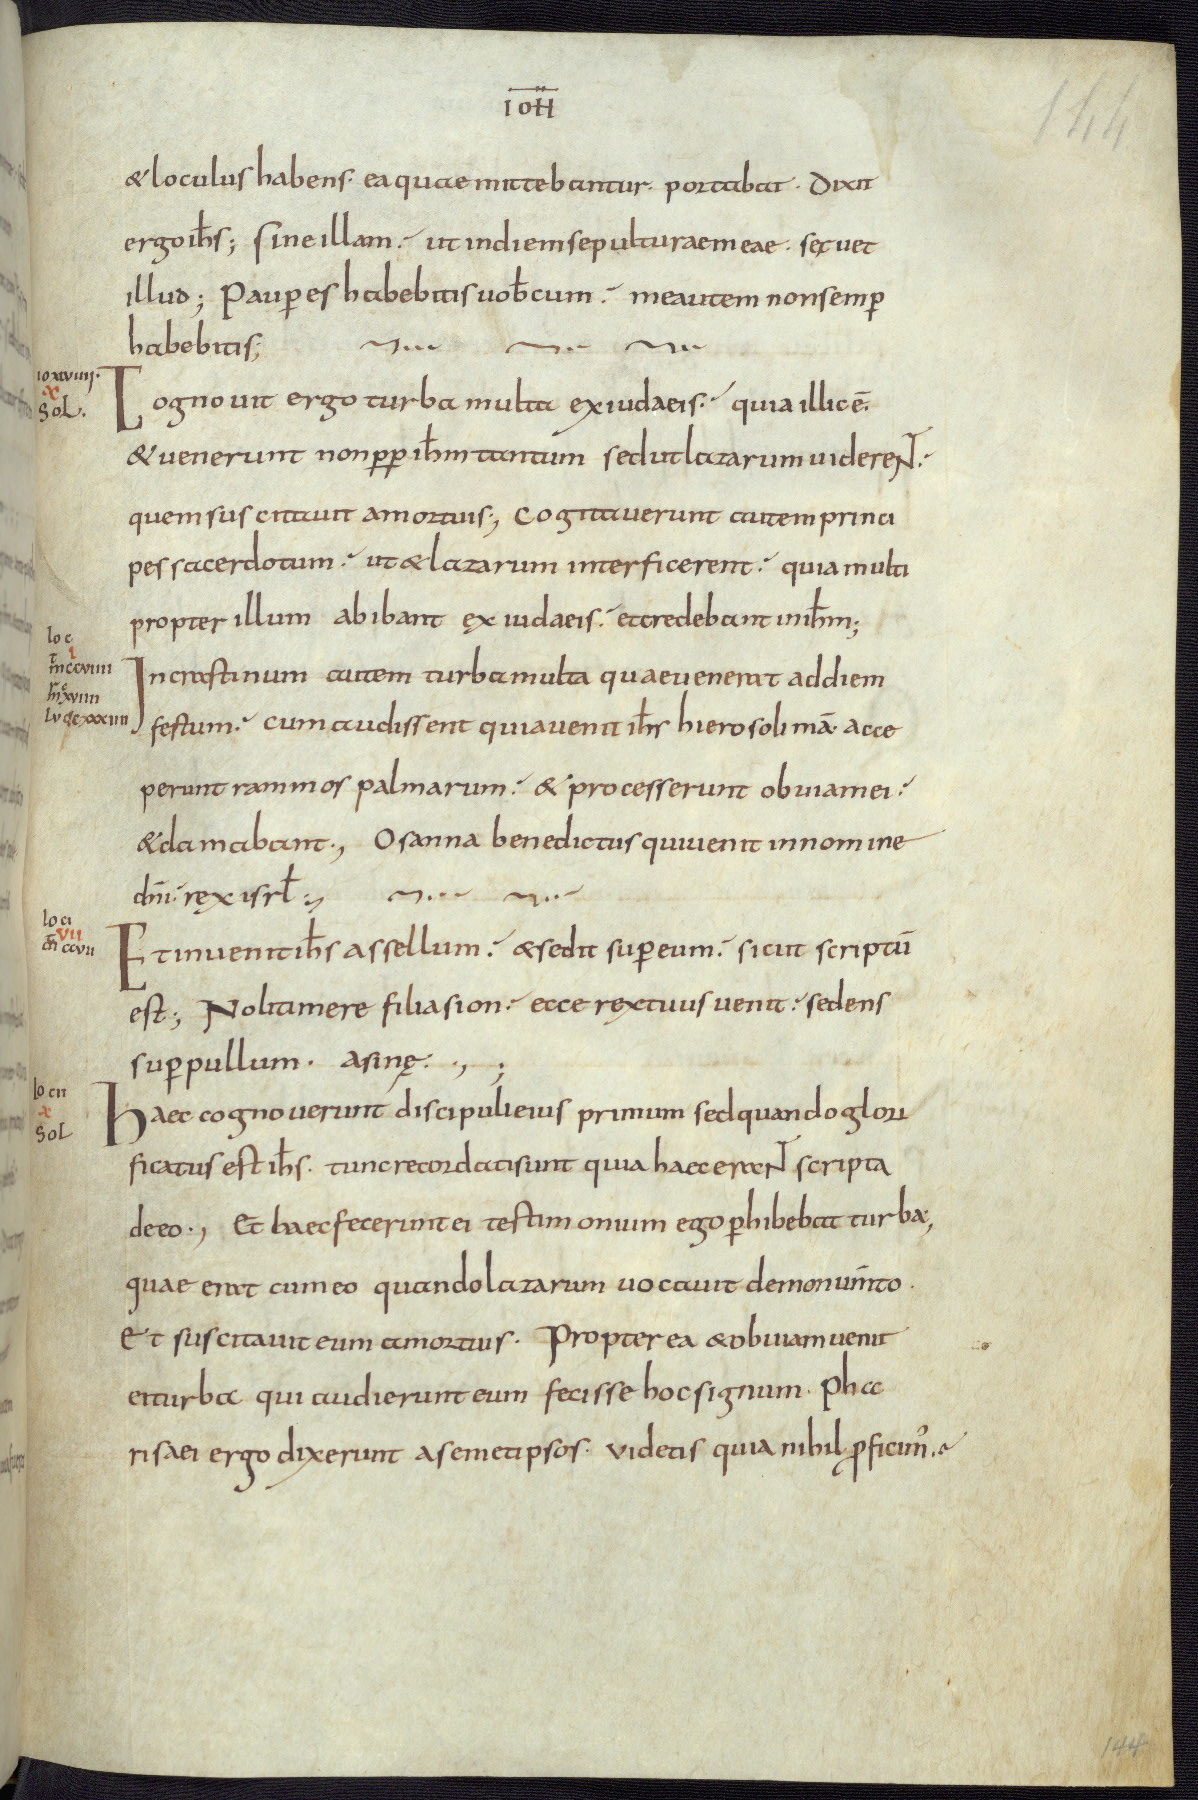 IOH
144
& loculus habens· ea quae mittebantur· portabat· Dixit
ergo ihs; sine illam· ut in diem sepulturae meae· seruet
illud; Pauperes habebitis uobcum· me autem non semp
habebitis;
io xcviiii·
x
Sol·
Cognouit ergo turba multa ex iudaeis· quia illic ē·
& uenerunt non pp ihm tantum sed ut lazarum uiderent·
quem suscitauit a mortuis·, Cogitauerunt autem princi
pes sacerdotum· ut & lazarum interficerent· quia multi
propter illum abibant ex iudaeis· et credebant in ihm;
io c
i
mt ccviiii
mr cxviiii
Lu ccxxxiiii
In crastinum autem turba multa quae uenerat ad diem
festum· cum audissent quia uenit ihs hierosolimā· acce
perunt rammos palmarum· & processerunt obuiam ei·
& clamabant·, Osanna benedictus qui uenit in nomine
dni· rex isrl·,
io ci
vii
mt ccvii
Et inuenit ihs assellum· & sedit super eum· sicut scriptū
est; Noli timere filia sion· ecce rex tuus uenit· sedens
super pullum· asinę·., ;
io cii
x
Sol
haec cognouerunt discipuli eius primum sed quando glori
ficatus est ihs· tunc recordati sunt quia haec erant scripta
de eo·, Et haec fecerunt ei testimonium ego phibebat turba;,
quae erat cum eo quando lazarum uocauit de monumto·
Et suscitauit eum a mortuis· Propterea & obuiam uenit
ei turba qui audierunt eum fecisse hoc signum· Pha
risaei ergo dixerunt a semetipsos· Videtis quia nihil proficim'·
144